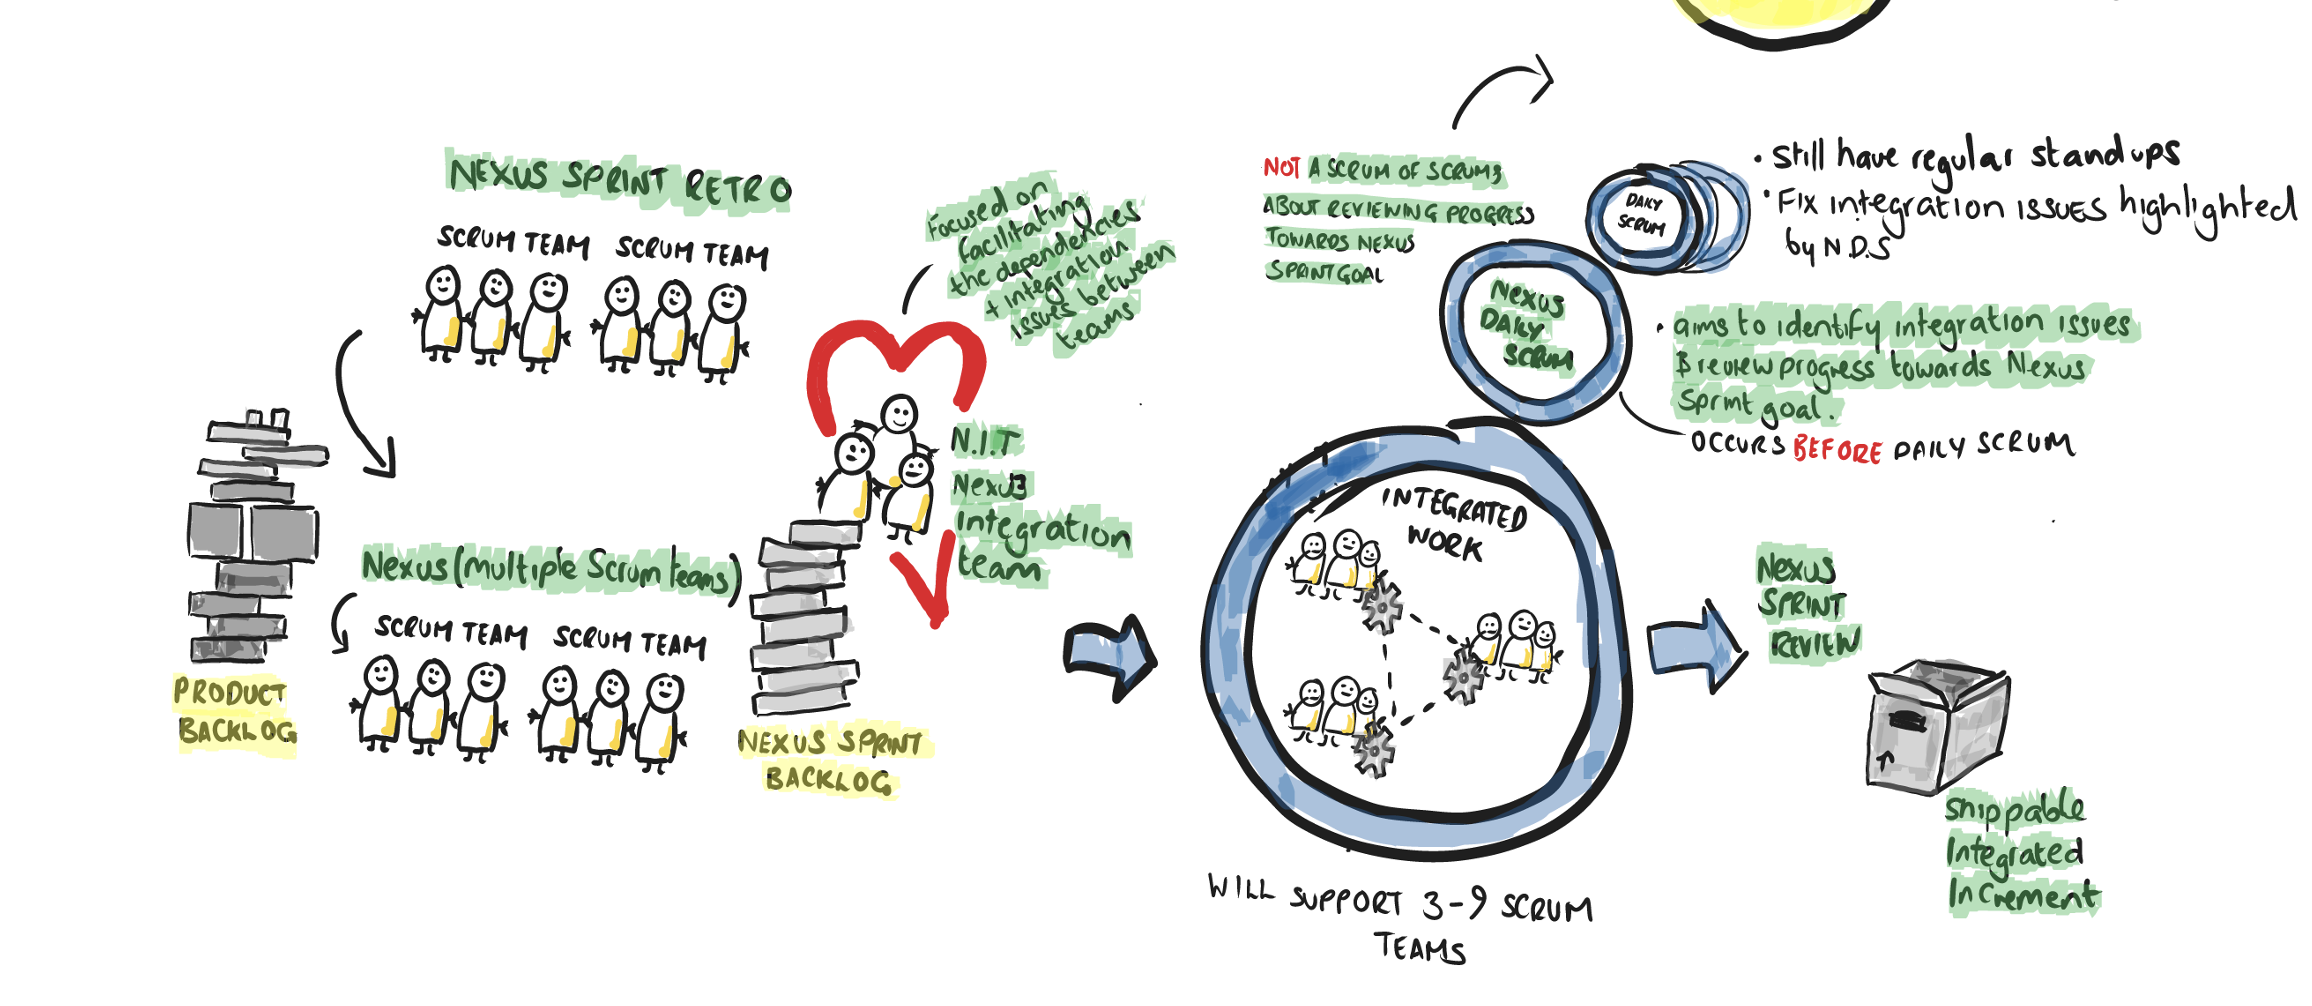 NEXUS SPRINT RETRO
SCRUM TEAM
SCRUM TEAM
Focused on
facilitating
the dependencies
+ integration
issues between
teams
N.I.T
Nexus
Integration
team
PRODUCT
BACKLOG
Nexus (multiple Scrum teams)
SCRUM TEAM
SCRUM TEAM
NEXUS SPRINT
BACKLOG
NOT A SCRUM OF SCRUMS
ABOUT REVIEWING PROGRESS
TOWARDS NEXUS
SPRINT GOAL
DAILY
SCRUM
• Still have regular standups
• Fix integration issues highlighted
by N.D.S
NEXUS
DAILY
SCRUM
• aims to identify integration issues
& review progress towards Nexus
Sprint goal.
OCCURS BEFORE DAILY SCRUM
INTEGRATED
WORK
WILL SUPPORT 3-9 SCRUM
TEAMS
NEXUS
SPRINT
REVIEW
Shippable
Integrated
Increment